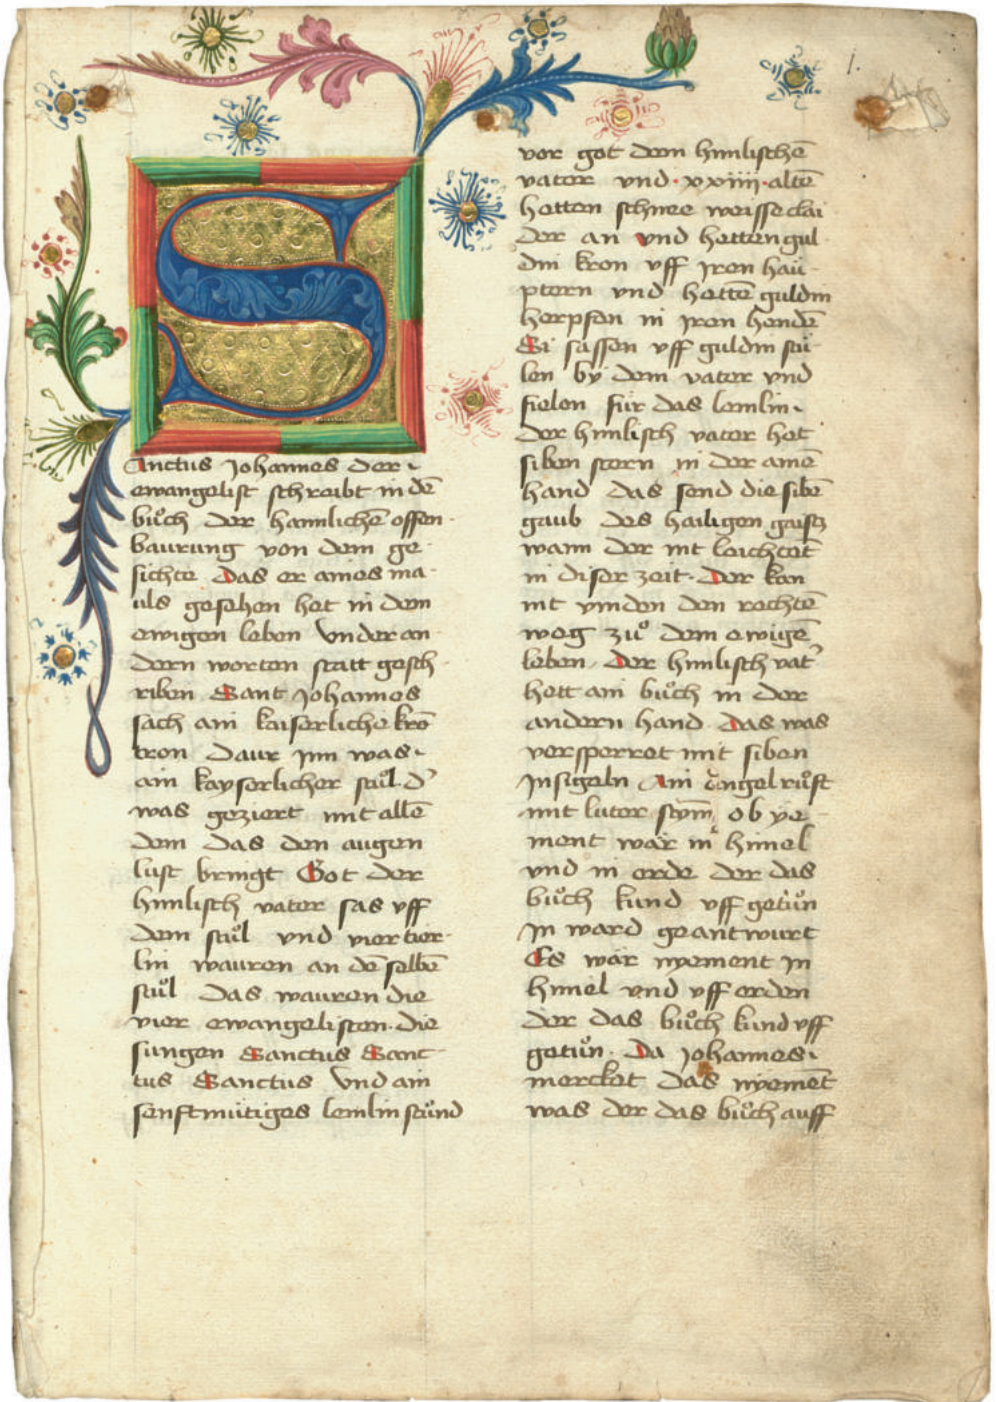 1.
Sanctus Johannes der
ewangelist schreibt in dē
bůch der haimlichē offen
baurung von dem ge
sichte das er aines ma
uls gesehen het in dem
ewigen leben Vnder an
dern worten statt gesch
riben Sant Johannes
sach ain kaiserliche krō
tron daur inn was
ain kayserlicher stůl d'
was geziert mit allē
dem das den augen
lust bringt Got der
himlisch vater sas vff
dem stůl vnd vier tier
lin wauren an dē selbē
stůl das wauren die
vier ewangelisten. die
sungen Sanctus Sanc
tus Sanctus Vnd ain
senftmütiges lemlin stůnd
vor got dem himlischē
vater vnd · xxiiii · altē
hetten schnee weisse clai
der an vnd hetten gul
din kron vff iren haü
ptern vnd hettē guldin
herpfen in iren hendē
Si sassen vff guldin stü
len by dem vater vnd
fielen für das lemlin.
Der himlisch vater het
siben stern in der ainē
hand das send die sibē
gaub des hailigen gaists
wann der nit leichtet
in diser zeit. Der kan
nit vinden den rechtē
weg zů dem ewigē
leben. Der himlisch vat'
hett ain bůch in der
andern hand. Das was
versperret mit siben
Insigeln Ain engel růft
mit luter stym̄ ob ye
ment wär in himel
vnd in erde der das
bůch kund vff getůn
Im ward geantwurt
Es wär nyement in
himel vnd vff erden
der das bůch kund vff
getůn. Da Johannes
mercket das nyemēt
was der das bůch auff